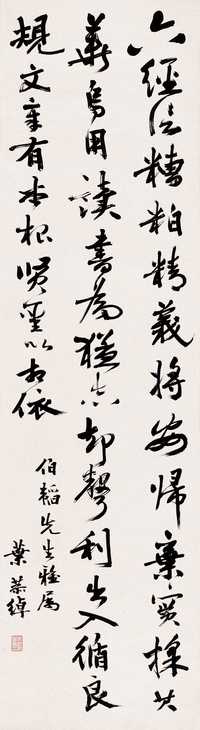 六經信糟粕精義將安歸棄實採其
華烏用讀書為猶去却聲利出入循良
規文章有本根賢聖以相依
伯韜先生雅屬
葉恭綽